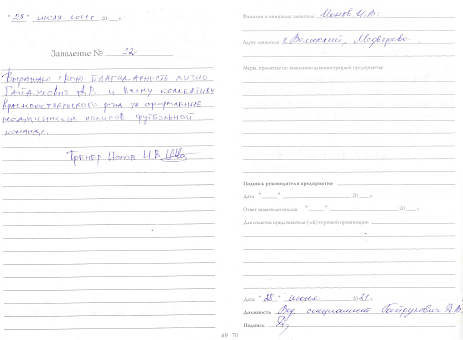 "28" июля 20 г.
Заявление № 22
Выражаю свою благодарность лично
Гайдукович Д.В. и всему коллективу
Краснооктябрьского р-на за оформление
медицинских полисов футбольной
команде.
Тренер Ионов И.В.
Фамилия и инициалы заявителя Ионов И.В.
Адрес заявителя г. Волжский, Медведева
Меры, принятые по заявлению администрацией предприятия:
Подпись руководителя предприятия
Дата " " 20 г.
Ответ заявителю послан " " 20 г.
Для отметок представителя (ей) торговой организации
Дата "28" июля 2021 г.
Должность Вед. специалист Гайдукович Д.В.
Подпись
69 70